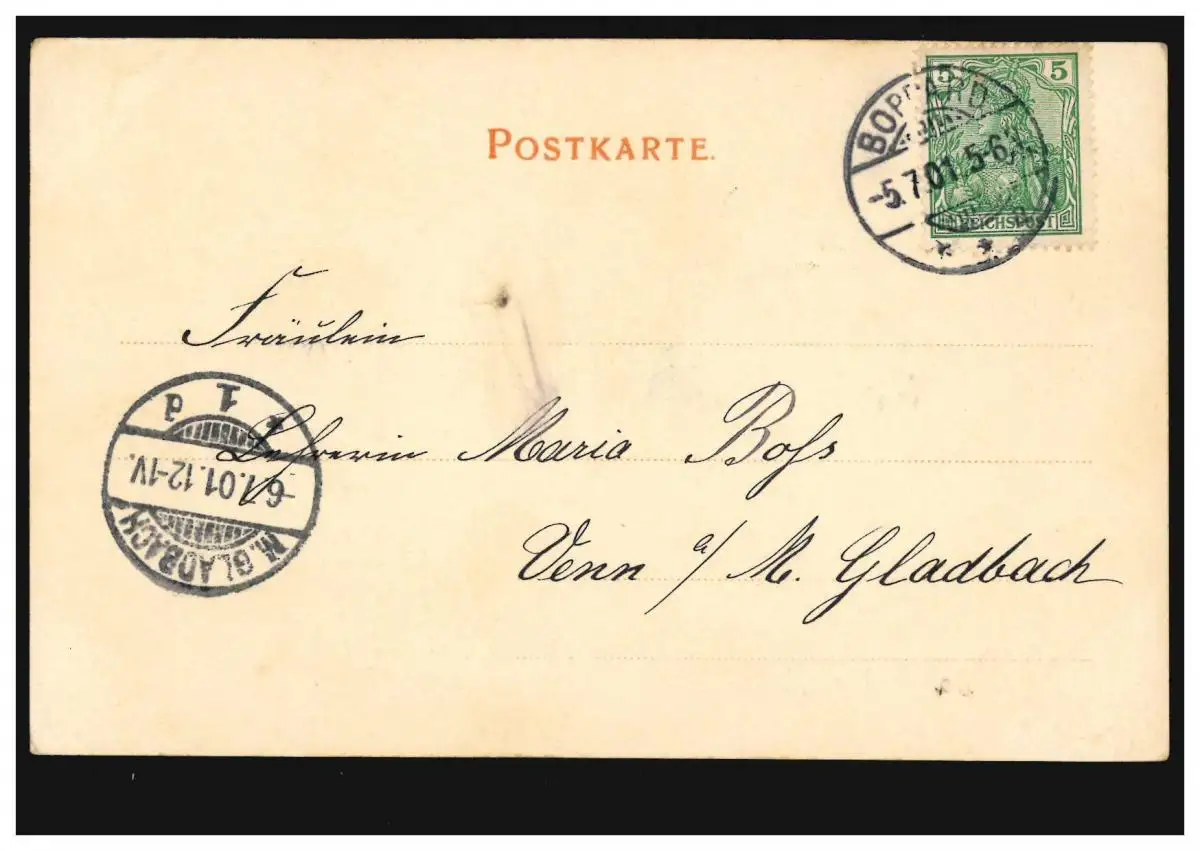 POSTKARTE.
5 5
REICHSPOST
BOPPARD
-5.7.01.5-6N.
Fräulein
Lehrerin Maria Bohs
Venn a/ M. Gladbach
M. GLADBACH
-6.7.01.12-1V.
* 1 d